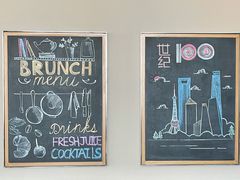 BRUNCH
menu
Drinks
FRESH JUICE
COCKTAILS
世纪
100